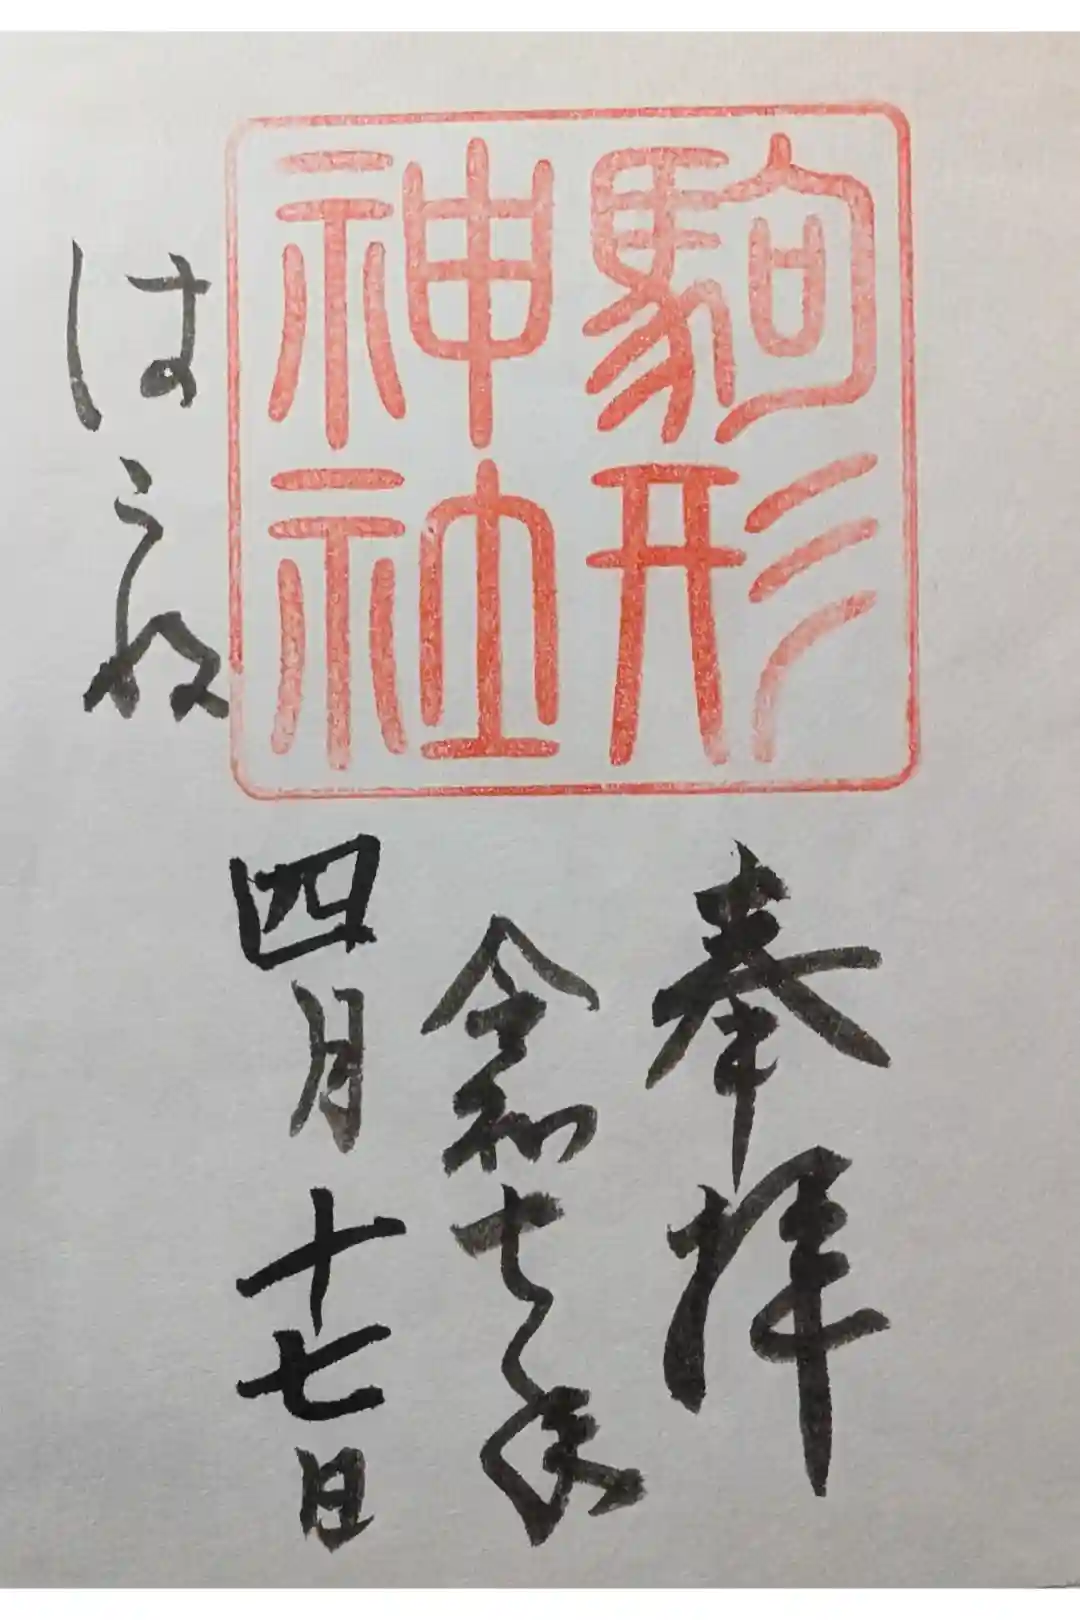 駒形
神社
奉拝
令和七年
四月十七日